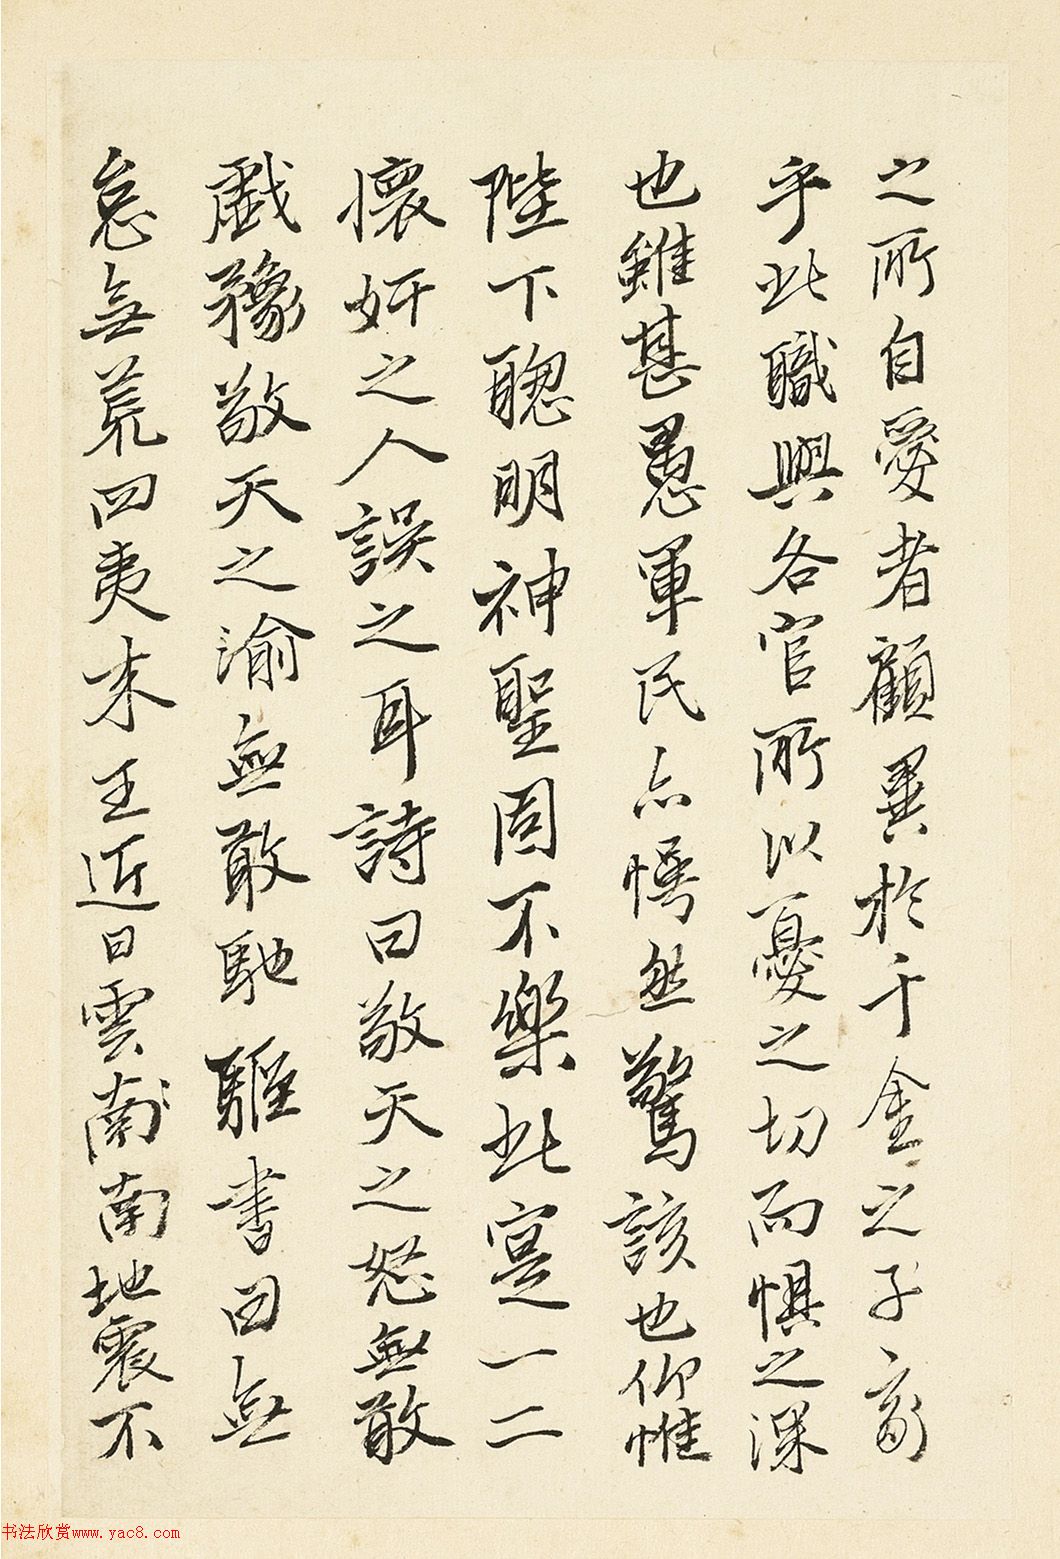 之所自愛者顧異於千金之子齋
乎此職與各官所以憂之切而懼之深
也雖甚愚軍民亦愕然驚該也仰惟
陛下聰明神聖固不樂此寔一二
懷奸之人誤之耳詩曰敬天之怒無敢
戲豫敬天之渝無敢馳駈書曰無
怠無荒四夷来王近日雲南南地震不
书法欣赏www.yac8.com